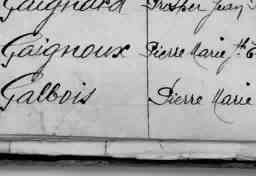 Gaignard Prosper Jean
Gaignoux Pierre Marie Jh
Galbois Pierre Marie